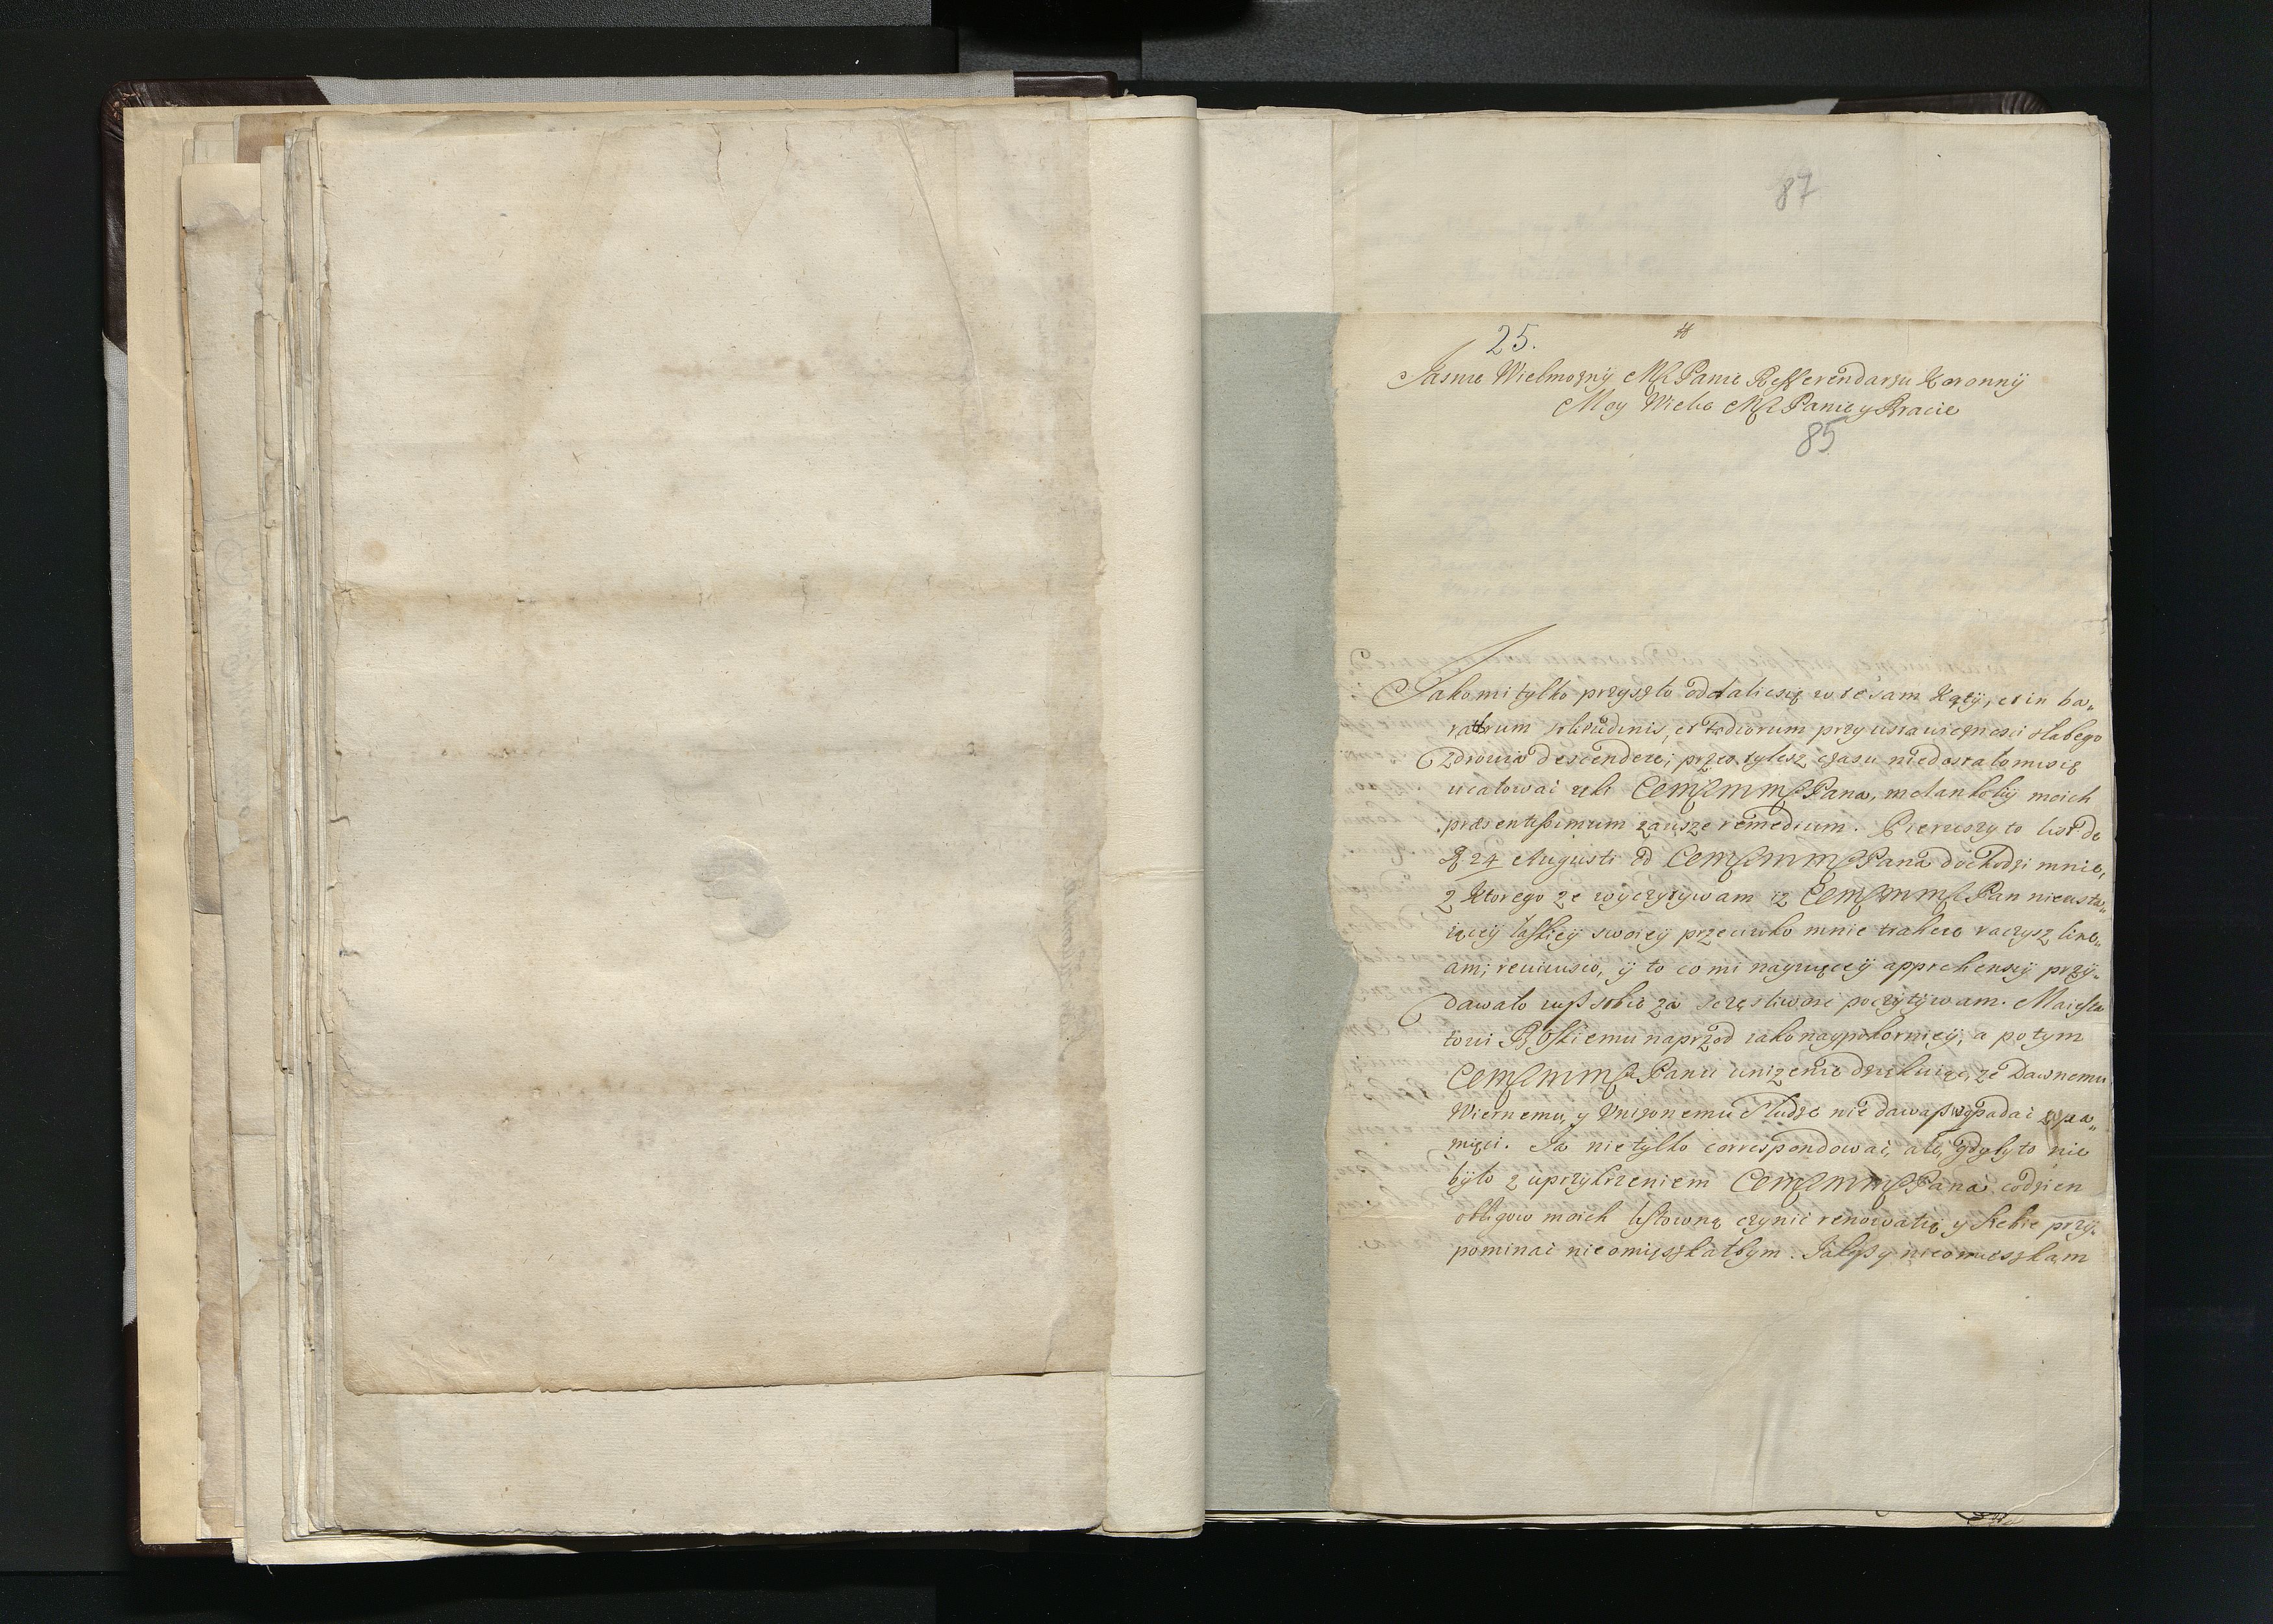 87
25.
Jasnie Wielmozny Mći Panie Refferendarzu Koronny
Moy Wielce Mći Panie y Bracie
85
Jako mi tylko przyszło oddalić się w te sam kąty, et in ba„
rathrum solitudinis, et tædiorum przy ustawiczności słabego
Zdrowia descendere, przez tylesz czasu niedostało mi się
ucałować ręki Pana, melankolij moich
præsentissimum zawsze remedium. Pierwszy to list de
24 Augusti od Pana dochodzi mnie,
z ktorego ze wyczytywam iz Pan nieusta„
iącey łaskiey swoiey przeciwko mnie trahere raczysz line„
am, reuiuisco, y to co mi naywięcey apprehensij przy„
dawało sobie za poczytywam. Maiesta
towi Boskiemu naprzod iako naypokorniey, a potym
Panu unizenie dziękuię, ze Dawnemu
Wiernemu, y Unizonemu Słudze nie dawasz wypadać z pa„
mięci. Ja nie tylko correspondować, ale, gdyby to nie
było z uprzykrzeniem Pana codzien
obligow moich listowną czynić renowatią y siebie przy„
pominać nieomięszkałbym. Jakosz y nieomieszkam